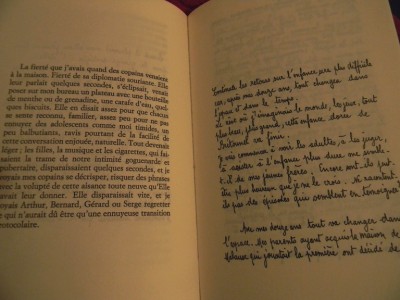 La fierté que j'avais quand des copains venaient
à la maison. Fierté de sa diplomatie souriante. Elle
leur parlait quelques secondes, s'éclipsait, venait
poser sur mon bureau un plateau avec une bouteille
de menthe ou de grenadine, une carafe d'eau, quel-
ques biscuits. Elle en disait assez pour que chacun
se sente reconnu, familier, assez peu pour ne pas
envoyer des adolescents comme moi timides, un
peu balbutiants, ravis pourtant de la facilité de
cette conversation enjouée, naturelle. Tout devenait
les filles, la musique et les cigarettes, qui fai-
saient la trame de notre infinité goguenarde et
pubertaire, disparaissaient quelques secondes, et je
voyais mes copains se décrisper, risquer des phrases
avec la volupté de cette aisance toute neuve qu'Elle
savait leur donner. Elle disparaissait vite, et je
voyais Arthur, Bernard, Gérard ou Serge regretter
ce qui n'aurait dû être qu'une ennuyeuse transition
protocolaire.
retours sur l'enfance plus difficiles
car, après mes douze ans, tout changea dans
l'espace et dans le temps.
Le rêve où j'imaginais le monde, les jeux, tout
plus beau, plus grand, cette enfance dorée de
finit.
Je vais commencer à voir les adultes, à les juger,
à savoir si l'enfance plus dure me
de mes jeunes frères. Encore ont-ils été
plus heureux que je ne le crois. Ils racontent
des épisodes qui semblent en témoigner
Avec mes douze ans tout va changer dans
l'espace. Mes parents ayant acquis la maison de
qui la première ont décidé de